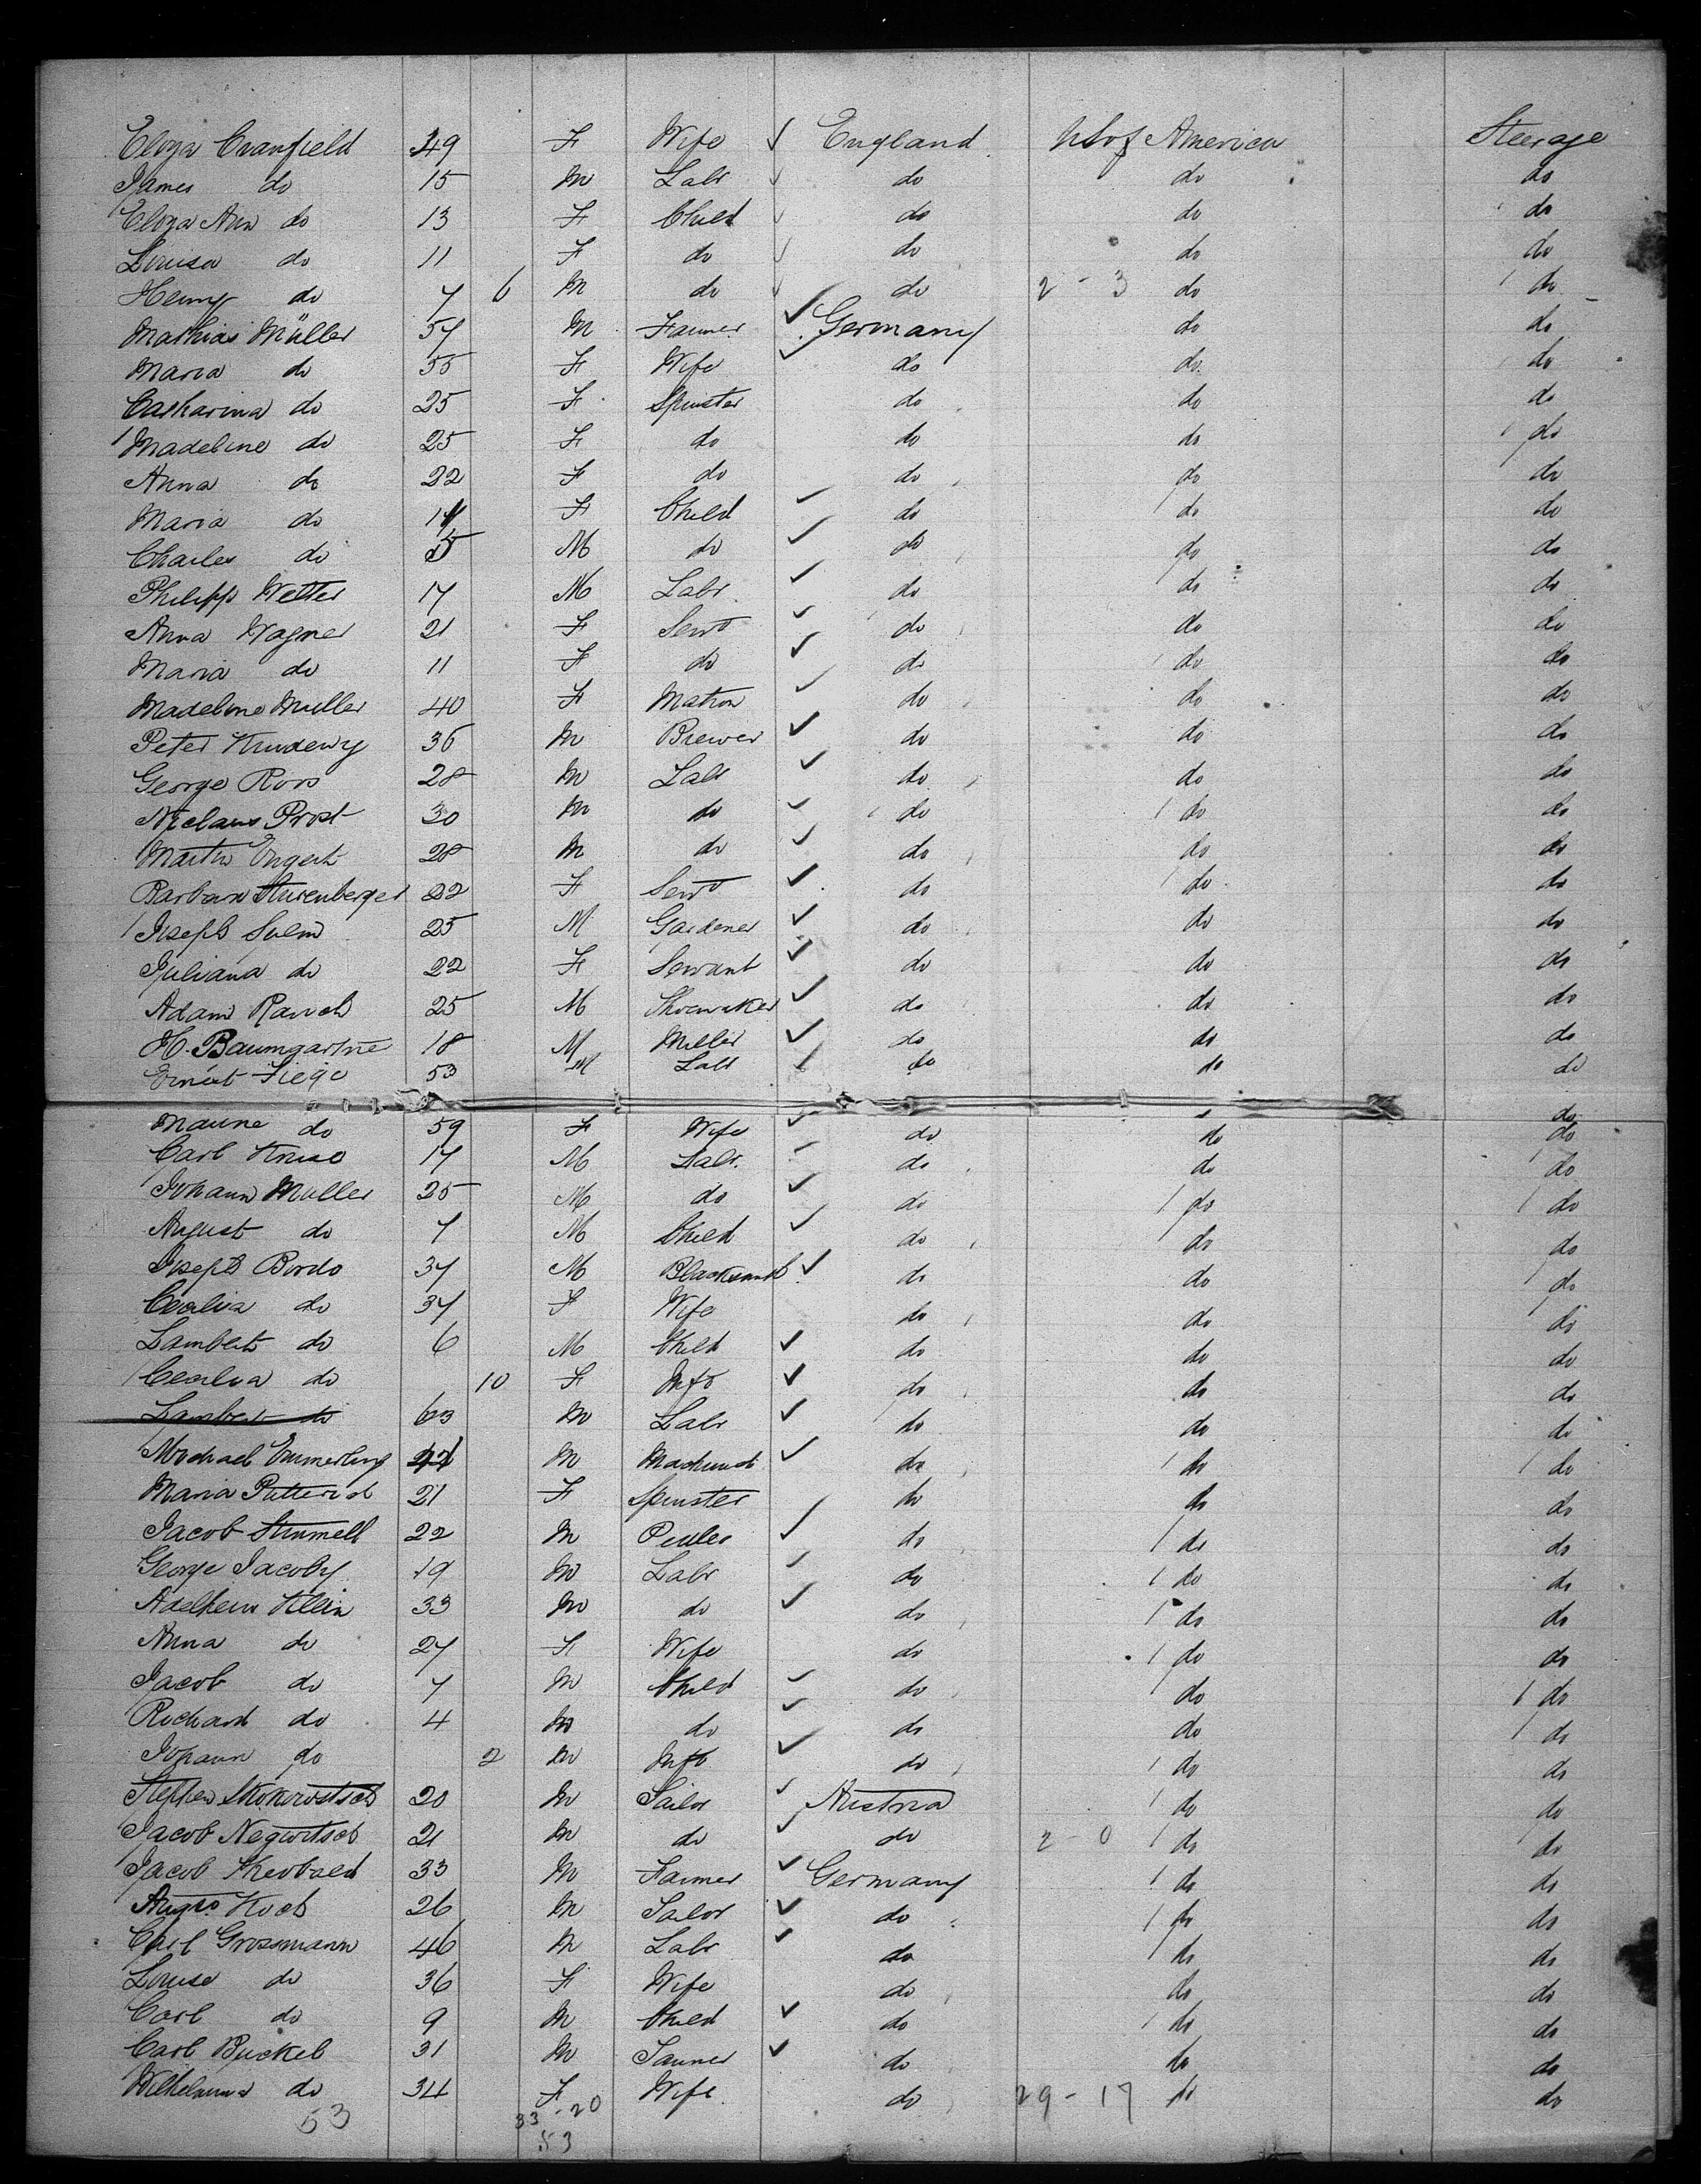 Eloza Cranfield 49 F Wife England U S of America Steerage
James do 15 M Labr do do do
Eloza Ann do 13 F Child do do do
Louisa do 11 F do do do do
Henry do 7 6 M do do 2 - 3 do do
Mathias Müller 57 M Farmer Germany do do
Maria do 55 F Wife do do do
Catharina do 25 F Spinster do do do
Madeline do 25 F do do do do
Anna do 22 F do do do do
Maria do F Child do do do
Charles do 5 M do do do do
Philipp Welter 17 M Labr do do do
Anna Wagner 21 F Servt do do do
Maria do 11 F do do do do
Madeline Muller 40 F Matron do do do
Peter Krudewy 36 M Brewer do do do
George Ross 28 M Labr do do do
Niclaus Prost 30 M do do do do
Martin Engert 28 M do do do do
Barbara 22 F Servt do do do
Joseph Salm 25 M Gardener do do do
Juliana do 22 F Servant do do do
Adam Rauch 25 M Shoemaker do do do
H. Baumgartne 18 M Miller do do do
Ernest Fiege 53 M Labr do do do
do
Maurne do 59 F Wife do do do
Carl Kruse 17 M Labr. do do do
Johann Muller 25 M do do do do
August do 7 M Child do do do
Joseph Bordo 37 M Blacksmith do do do
Cecilia do 37 F Wife do do do
Lambert do 6 M Child do do do
Cecilia do 10 F Inft do do do
Lambert do 63 M Labr do do do
Michael Emmerling M Machinist do do do
Maria 21 F Spinster do do do
Jacob Stummell 22 M do do do
George Jacoby 19 M Labr do do do
Adelheim Klein 33 M do do do do
Anna do 27 F Wife do do do
Jacob do 7 M Child do do do
Richard do 4 M do do do do
Johann do 2 M Inft do do do
Stephen 20 M Sailor Austria do do
Jacob Negwitsch 21 M do do 2 - 0 do do
Jacob Theobald 33 M Farmer Germany do do
Augt Koch 26 M Tailor do do do
Carl Grossmann 46 M Labr do do do
Louise do 36 F Wife do do do
Carl do 9 M Child do do do
Carl Buckel 31 M Tanner do do do
Wilhelmina do 34 F Wife do 29 - 17 do do
53 33 - 20
53